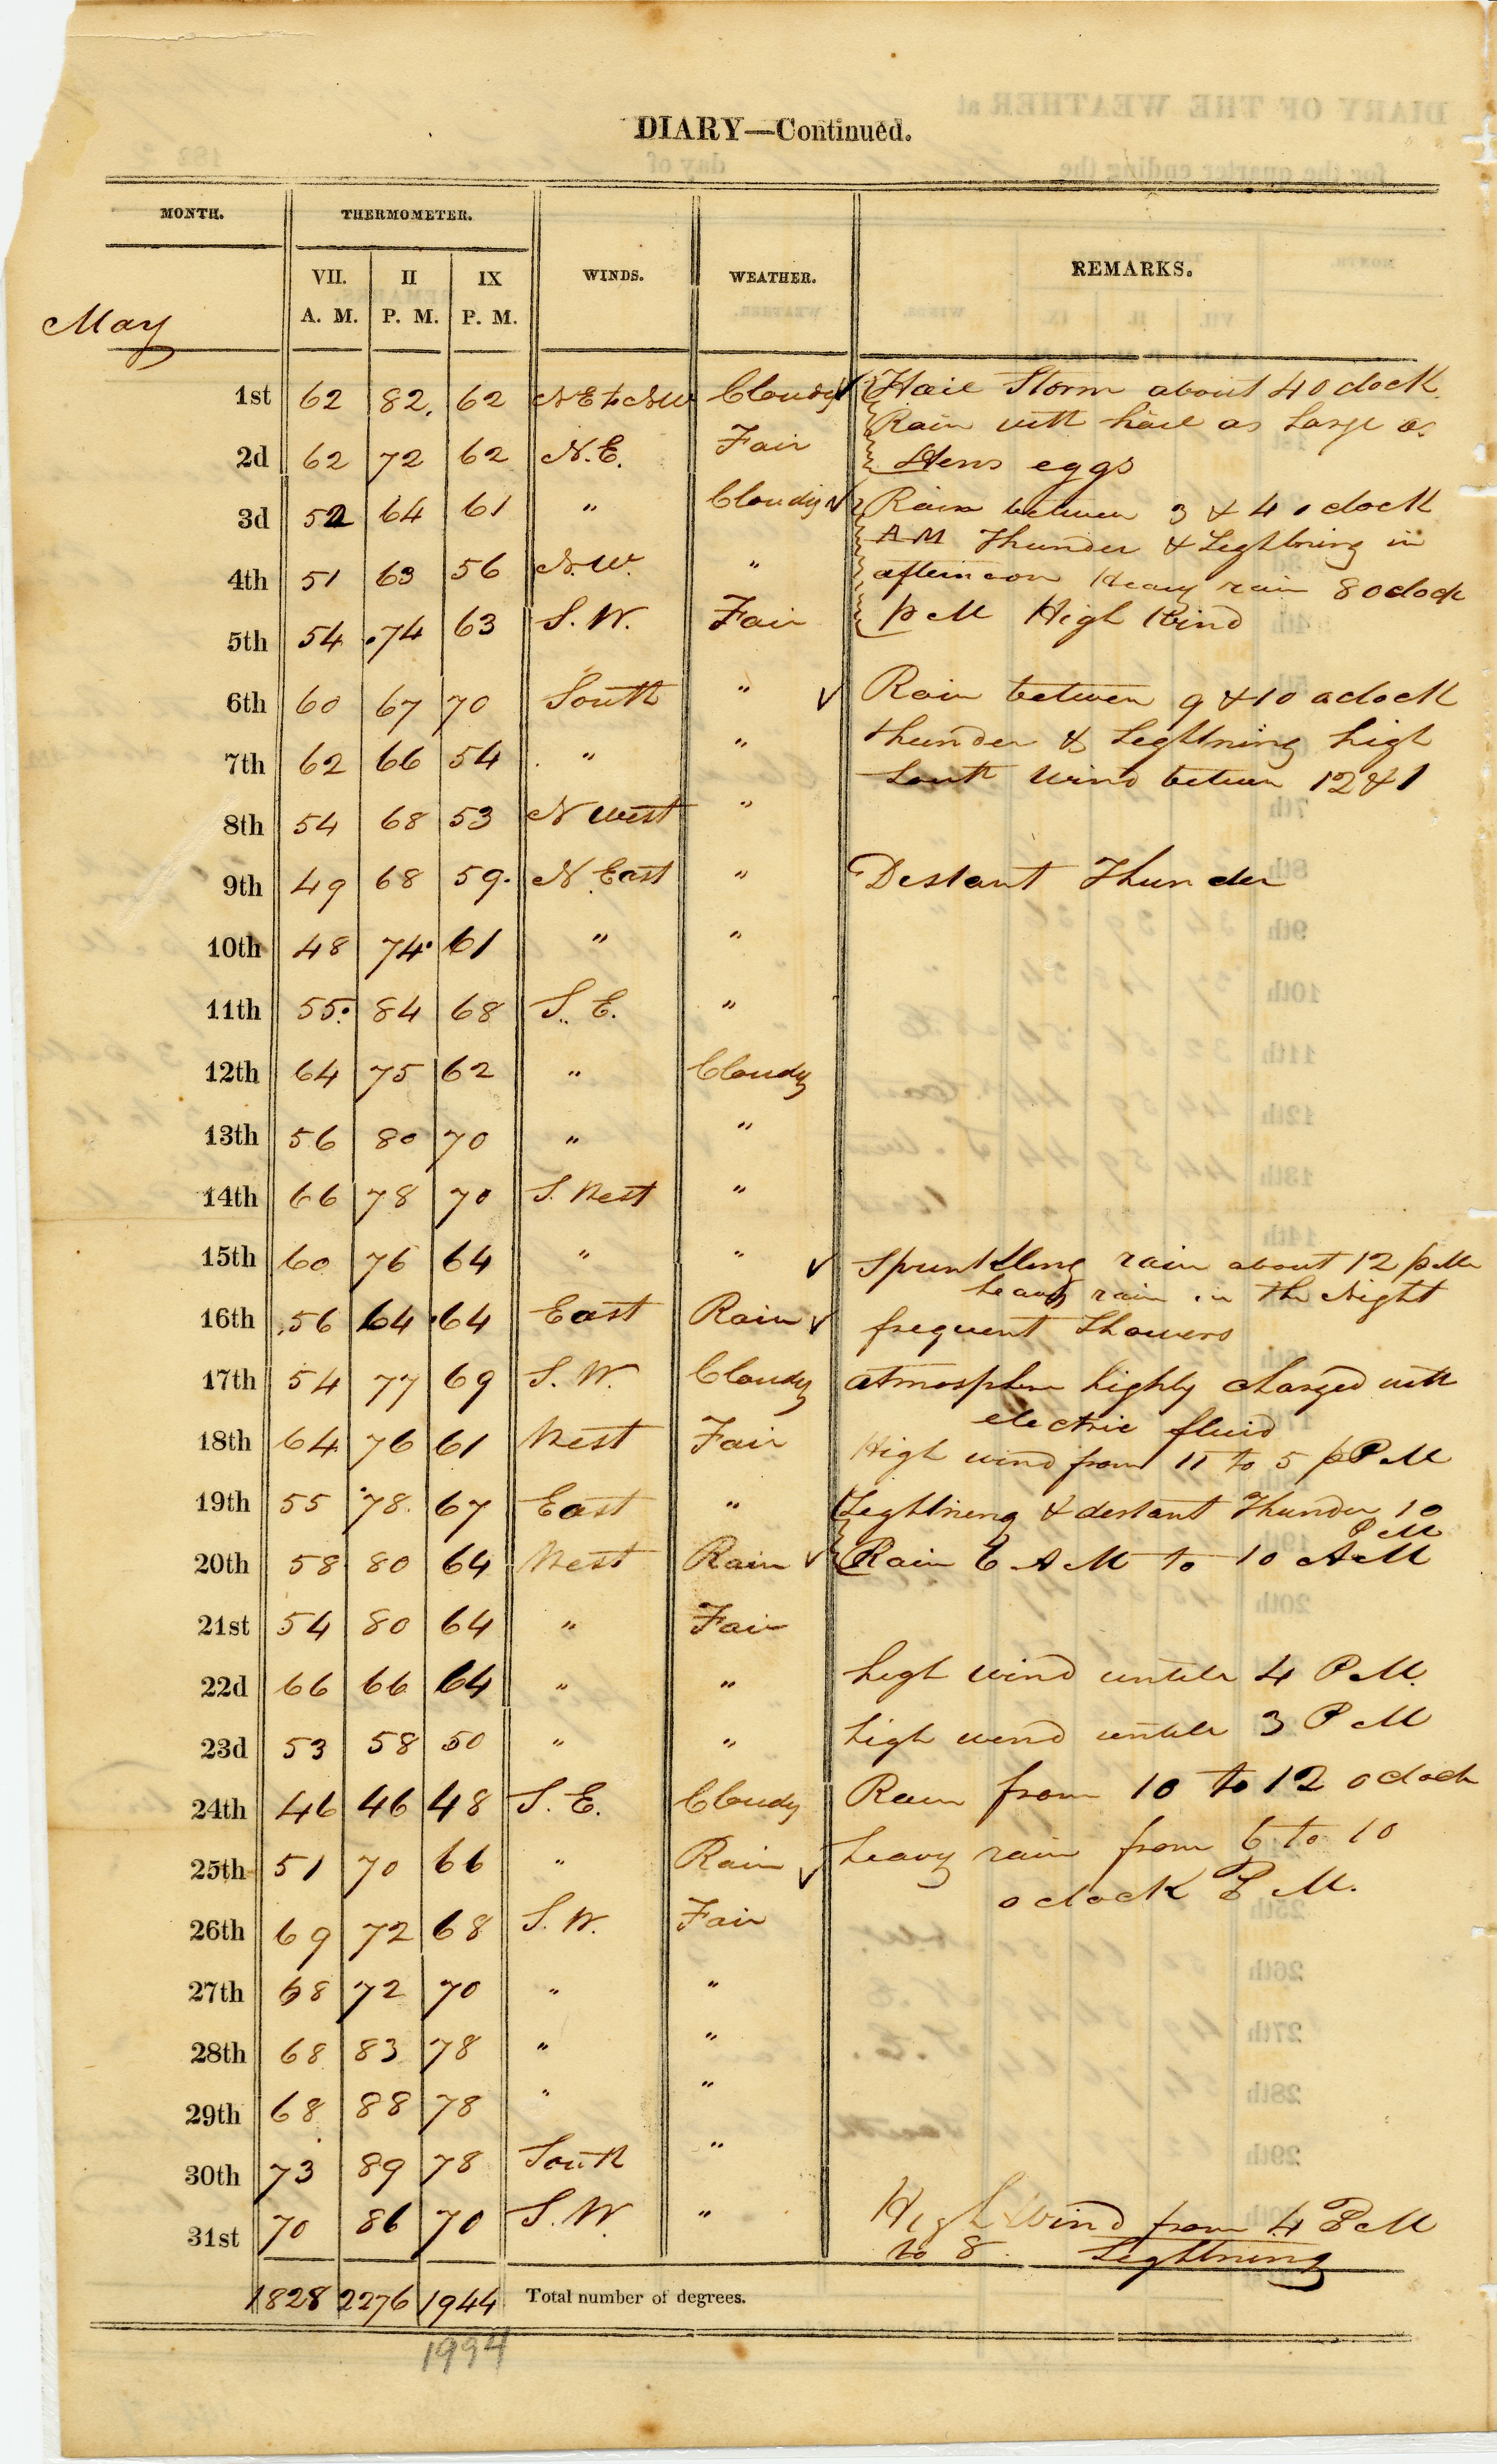 DIARY—Continued.
MONTH. THERMOMETER. WINDS. WEATHER. REMARKS.
VII. A. M. II P. M. IX P. M.
May
1st 62 82. 62 N E to NW Cloudy ✓ Hail Storm about 4 o clock.
Rain with hail as Large as
2d 62 72 62 N.E. Fair Hens eggs
3d 52 64 61 " Cloudy ✓ Rain between 3 & 4 o clock
A M Thunder & Lightning in
4th 51 63 56 N.W. " afternoon Heavy rain 8 o clock
5th 54 74 63 S. W. Fair P M High Wind
6th 60 67 70 South " ✓ Rain between 9 & 10 o clock
7th 62 66 54 " " thunder & Lightning high
South Wind between 12 & 1
8th 54 68 53 N West "
9th 49 68 59. N. East " Distant Thunder
10th 48 74 61 " "
11th 55 84 68 S. E. "
12th 64 75 62 " Cloudy
13th 56 80 70 " "
14th 66 78 70 S. West "
15th 60 76 64 " " ✓ Sprinkling rain about 12 P M
heavy rain in the Night
16th 56 64 64 East Rain ✓ frequent Showers
17th 54 77 69 S. W. Cloudy atmosphere highly charged with
electric fluid
18th 64 76 61 West Fair High wind from 11 to 5 P M
19th 55 78. 67 East " Lightning & distant Thunder 10
P M
20th 58 80 64 West Rain ✓ Rain 6 A M to 10 A M
21st 54 80 64 " Fair
22d 66 66 64 " " high wind untill 4 P M.
23d 53 58 50 " " high wind untill 3 P M
24th 46 46 48 S. E. Cloudy Rain from 10 to 12 o clock
25th 51 70 66 " Rain ✓ heavy rain from 6 to 10
o clock P M.
26th 69 72 68 S. W. Fair
27th 68 72 70 " "
28th 68 83 78 " "
29th 68 88 78 " "
30th 73 89 78 South "
31st 70 86 70 S. W. " High Wind from 4 P M
to 8. Lightning
1828 2276 1944 Total number of degrees.
1994